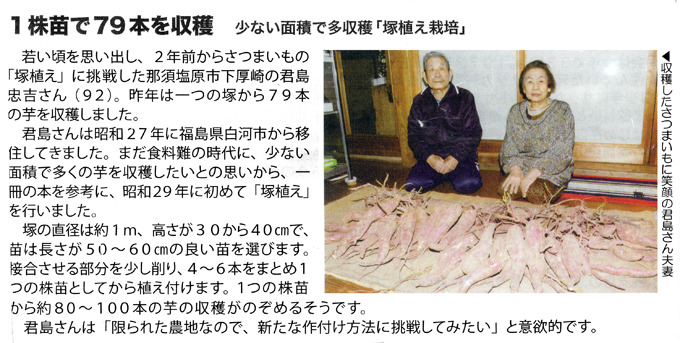 １株苗で７９本を収穫　少ない面積で多収穫「塚植え栽培」
若い頃を思い出し、２年前からさつまいもの
「塚植え」に挑戦した那須塩原市下厚崎の君島
忠吉さん（９２）。昨年は一つの塚から７９本
の芋を収穫しました。
君島さんは昭和２７年に福島県白河市から移
住してきました。まだ食料難の時代に、少ない
面積で多くの芋を収穫したいとの思いから、一
冊の本を参考に、昭和２９年に初めて「塚植え」
を行いました。
塚の直径は約１ｍ、高さが３０から４０㎝で、
苗は長さが５０～６０㎝の良い苗を選びます。
接合させる部分を少し削り、４～６本をまとめ１
つの株苗としてから植え付けます。１つの株苗
から約８０～１００本の芋の収穫がのぞめるそうです。
君島さんは「限られた農地なので、新たな作付け方法に挑戦してみたい」と意欲的です。
◀収穫したさつまいもに笑顔の君島さん夫妻